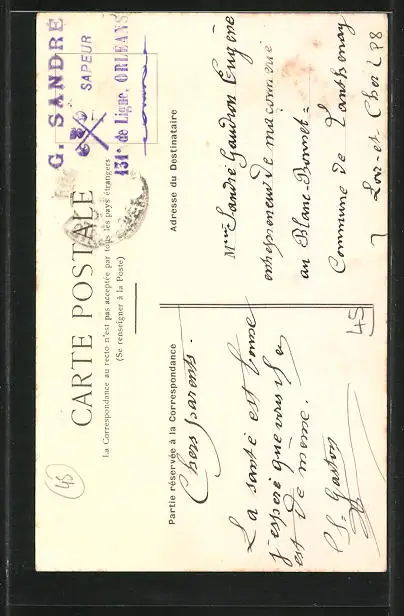 G. SANDRÉ
SAPEUR
131e de Ligne, ORLÉANS
CARTE POSTALE
La Correspondance au recto n'est pas acceptée par tous les pays étrangers
(Se renseigner à la Poste)
45
Partie réservée à la Correspondance
Chers parents.
La santé est bonne
j'espère que vous y
est de même.
Gaston
Adresse du Destinataire
Sandré Gaudron Eugène
entrepreneur de maçonnerie
au Blanc-Bonnet
Commune de Lanthenay
Loir-et-Cher
45